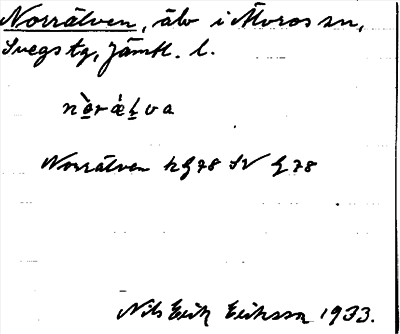 Norrälven, älv i Älvros sn,
Svegs tg, Jämtl. l.
Norrälven kg 78 SV g 78
Nils Erik Eriksson 1933.